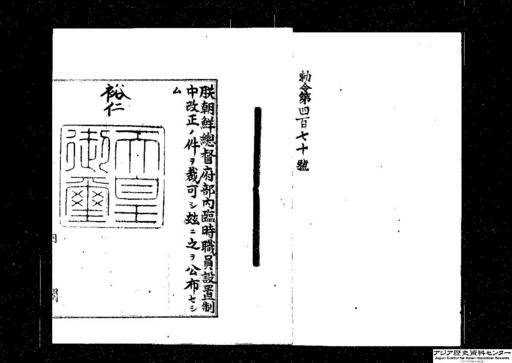 勅令第四百七十號
朕朝鮮總督府部內臨時職員設置制
中改正ノ件ヲ裁可シ玆ニ之ヲ公布セシ
ム
裕仁
天皇
御璽
アジア歴史資料センター
Japan Center for Asian Historical Records